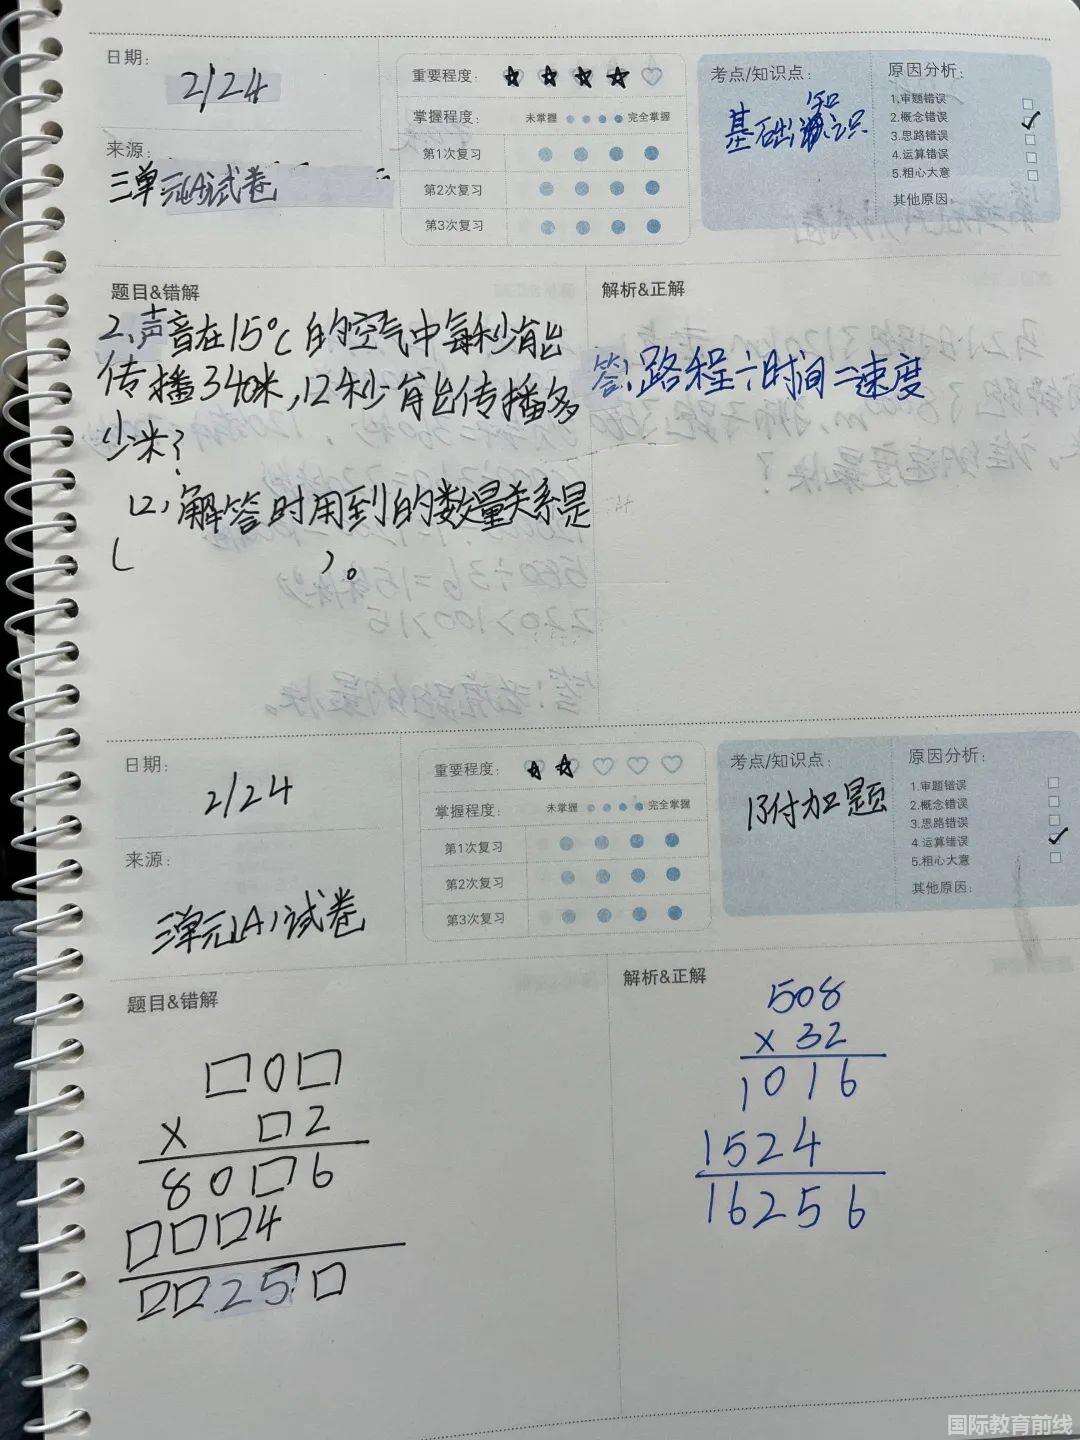 日期：
2/24
来源：
三单元(A)试卷
重要程度：
掌握程度： 未掌握 完全掌握
第1次复习
第2次复习
第3次复习
考点/知识点：
基础知识
原因分析：
1.审题错误
2.概念错误
3.思路错误
4.运算错误
5.粗心大意
其他原因：
题目&错解
2、声音在15℃的空气中每秒能
传播340米，12秒能传播多
少米？
(2)解答时用到的数量关系是
( )。
解析&正解
答：路程÷时间=速度
日期：
2/24
来源：
三单元(A)试卷
重要程度：
掌握程度： 未掌握 完全掌握
第1次复习
第2次复习
第3次复习
考点/知识点：
附加题
原因分析：
1.审题错误
2.概念错误
3.思路错误
4.运算错误
5.粗心大意
其他原因：
题目&错解
□0□
× □2
80□6
□□□4
□□25□
解析&正解
508
× 32
1016
1524
16256
国际教育前线